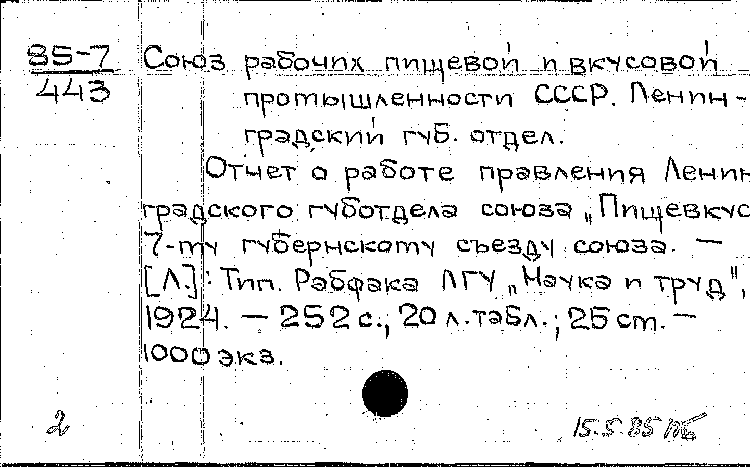 85-7 Союз рабочих пищевой и вкусовой
443 промышленности СССР. Ленин-
градский губ. отдел.
Отчет о работе правления Ленин
градского губотдела союза „Пищевкус
7-му губернскому съезду союза. —
[Л.]: Тип. Рабфака ЛГУ „Наука и труд",
1924. — 252 с., 20 л. табл.; 25 cm. —
1000 экз.
2 15.5.85